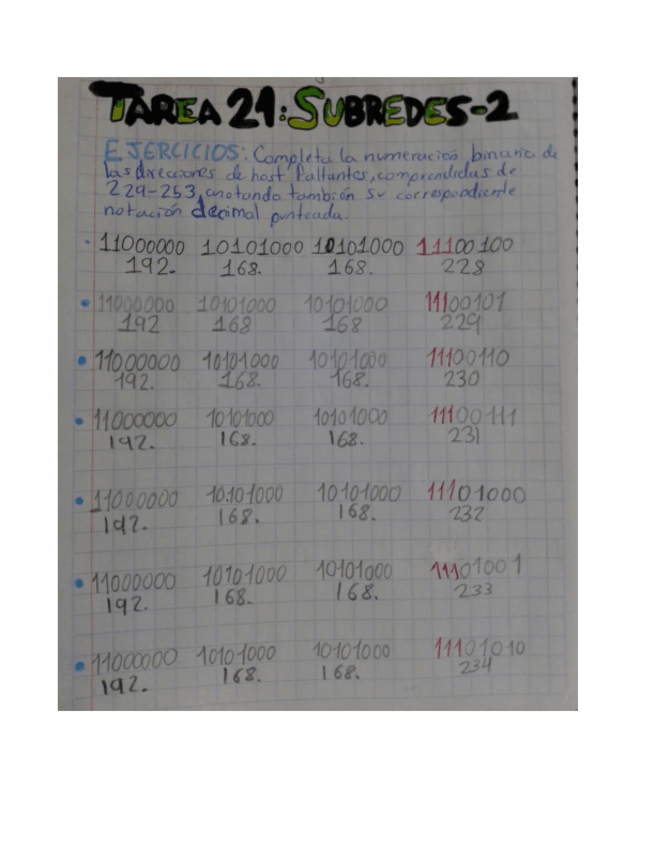 TAREA 21: SUBREDES-2
EJERCICIOS: Completa la numeración binaria de
las direcciones de host faltantes, comprendidas de
229-253, anotando también su correspondiente
notación decimal punteada.
11000000 10101000 10101000 11100100
192. 168. 168. 228
11000000 10101000 10101000 11100101
192 168 168 229
11000000 10101000 10101000 11100110
192. 168. 168. 230
11000000 10101000 10101000 11100111
192. 168. 168. 231
11000000 10101000 10101000 11101000
192. 168. 168. 232
11000000 10101000 10101000 11101001
192. 168. 168. 233
11000000 10101000 10101000 11101010
192. 168. 168. 234